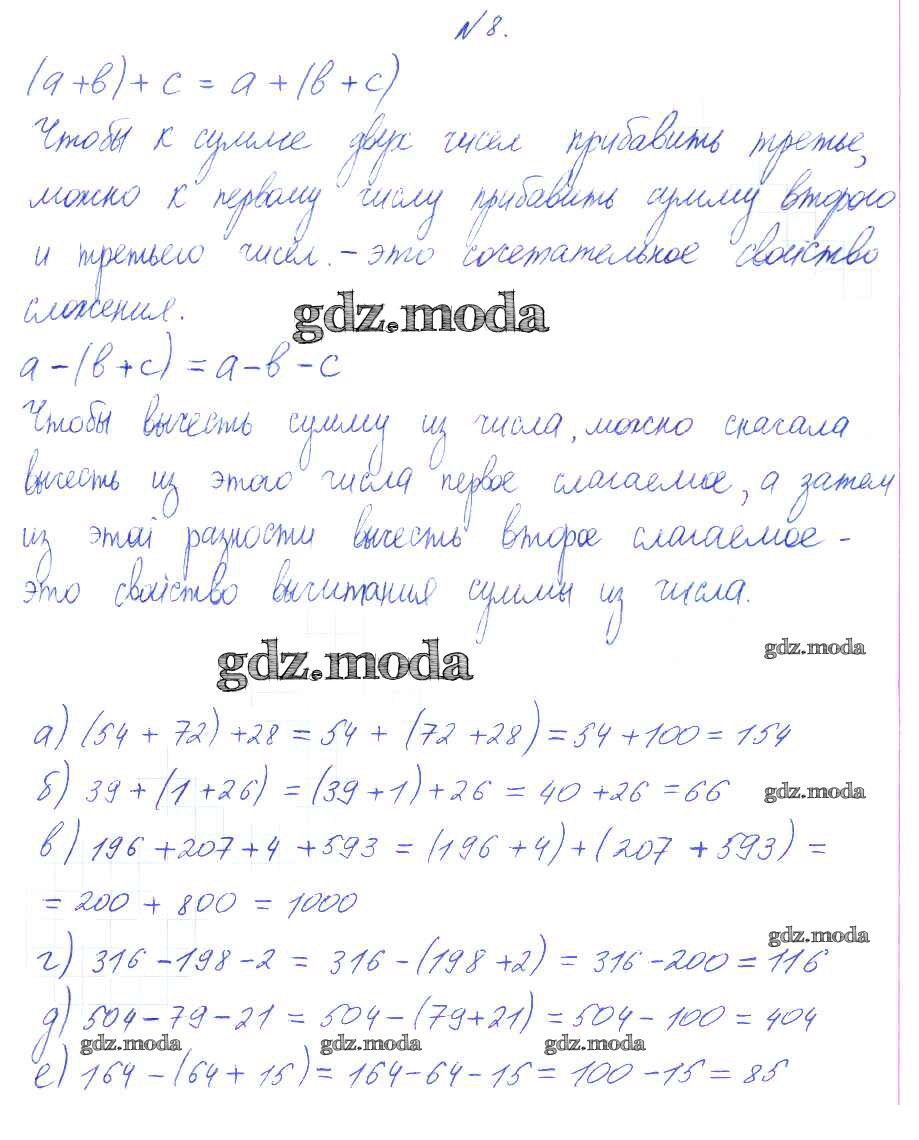 № 8.
(а+в)+с = а+(в+с)
Чтобы к сумме двух чисел прибавить третье,
можно к первому числу прибавить сумму второго
и третьего чисел. - это сочетательное свойство
сложения.
gdz.moda
а-(в+с)=а-в-с
Чтобы вычесть сумму из числа, можно сначала
вычесть из этого числа первое слагаемое, а затем
из этой разности вычесть второе слагаемое -
это свойство вычитания суммы из числа.
gdz.moda
gdz.moda
а) (54 + 72) +28 = 54 + (72 +28) =54 +100 = 154
б) 39 +(1 +26) = (39 +1) +26 = 40 +26 =66
gdz.moda
в) 196 +207+4 +593 = (196 +4)+(207 +593) =
= 200 + 800 = 1000
gdz.moda
г) 316 -198-2 = 316 -(198 +2) = 316 -200 = 116
д) 504-79-21 = 504-(79+21) =504- 100 = 404
gdz.moda gdz.moda gdz.moda
е) 164 -(64+ 15) = 164-64-15 = 100 -15 = 85